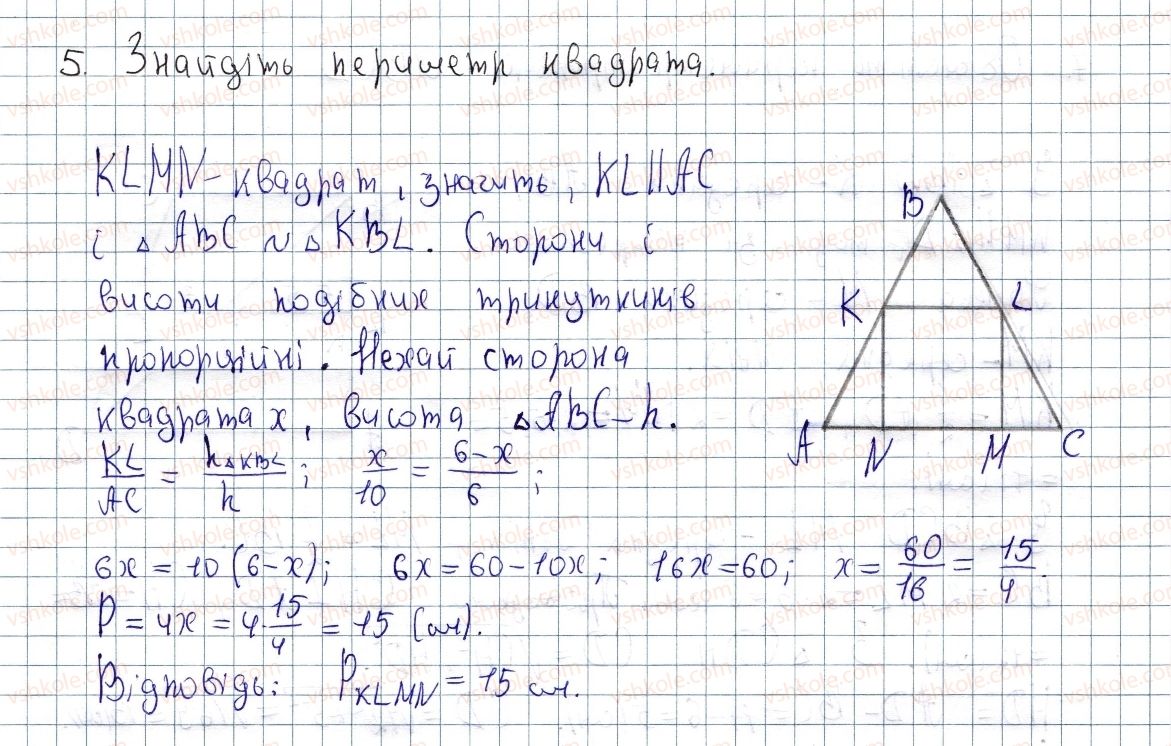 5. Знайдіть периметр квадрата.
KLMN – квадрат, значить, KL || AC
і △ ABC ~ △ KBL. Сторони і
висоти подібних трикутників
пропорційні. Нехай сторона
квадрата x, висота △ABC – h.
KL/AC = h△KBL/h; x/10 = (6-x)/6;
6x = 10(6-x); 6x = 60-10x; 16x = 60; x = 60/16 = 15/4.
P = 4x = 4·15/4 = 15 (см).
Відповідь: P KLMN = 15 см.
B
K L
A N M C
vshkole.com